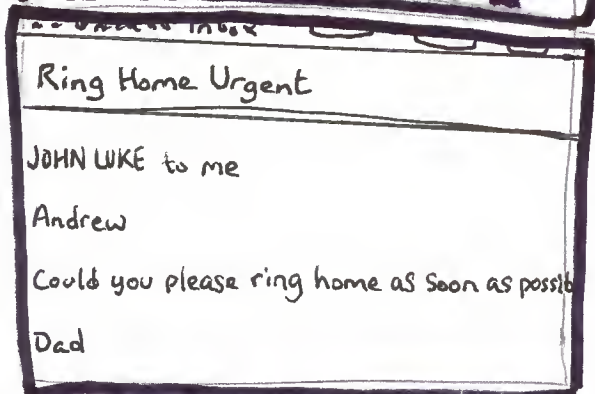 Ring Home Urgent
JOHN LUKE to me
Andrew
Could you please ring home as soon as possib
Dad